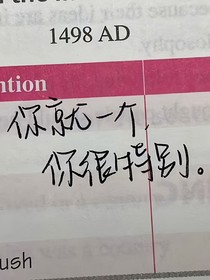 1498 AD
ntion
你就一个，
你很特别。
ush